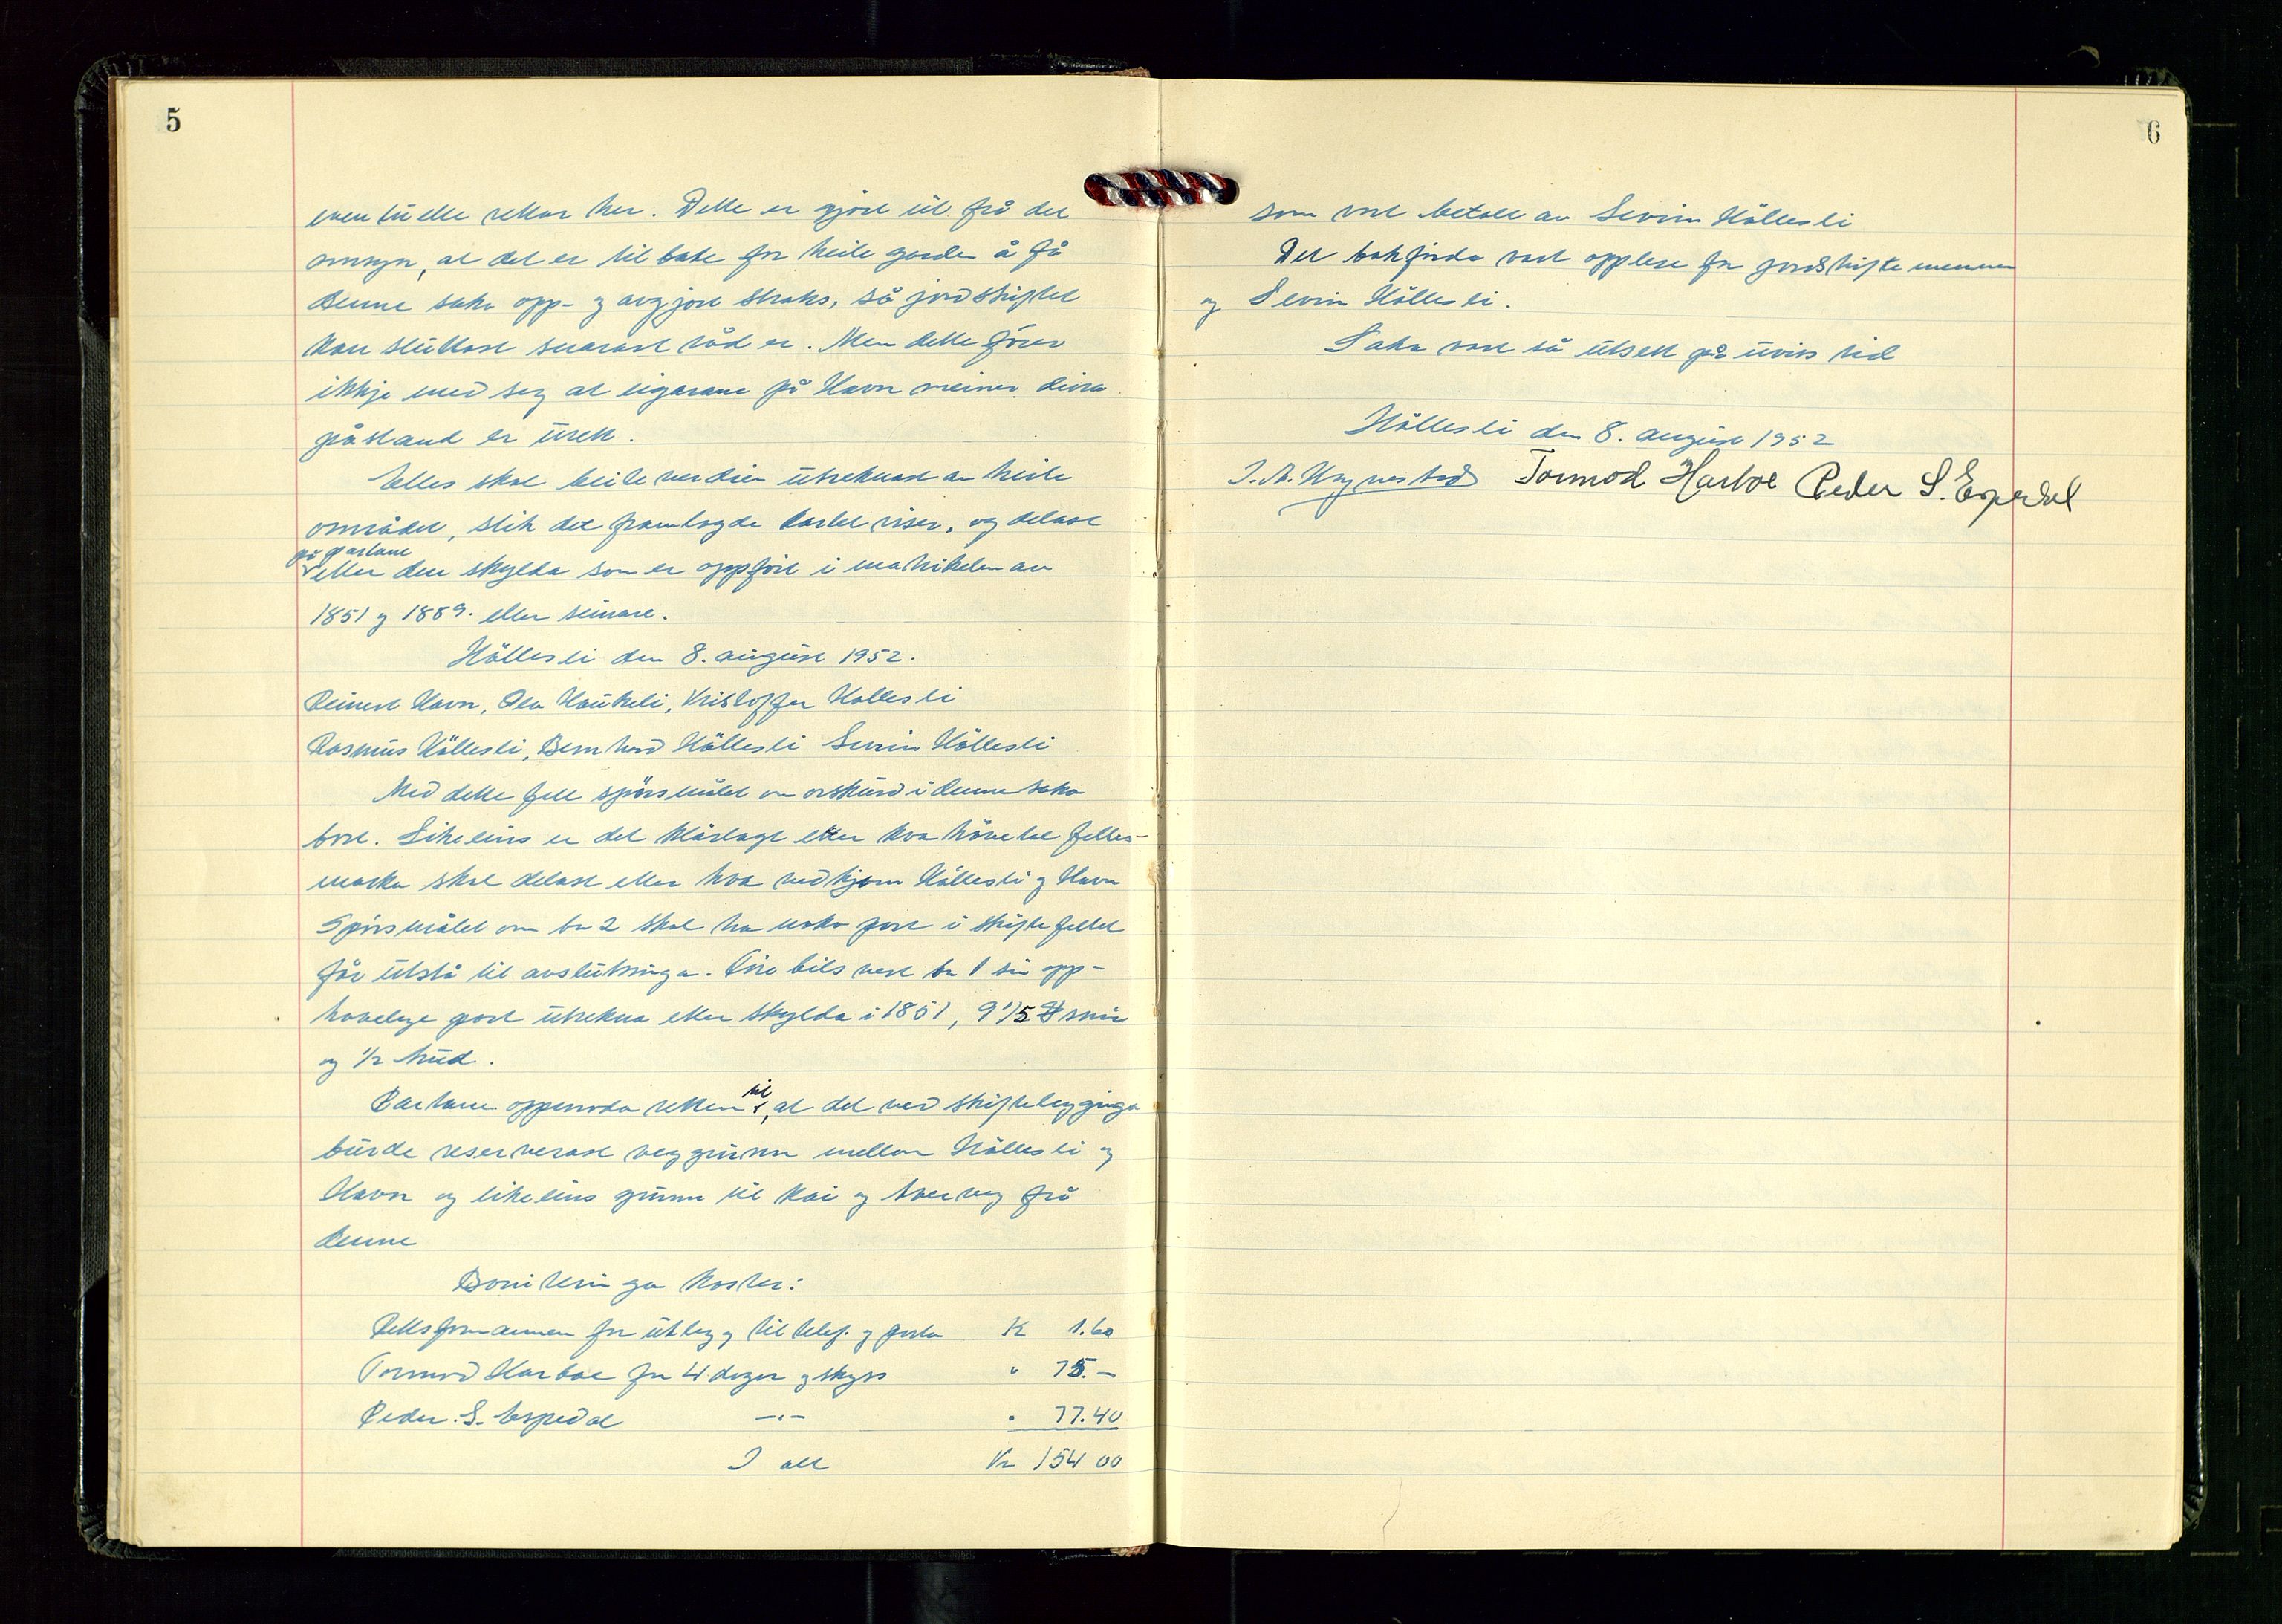 5
eventuelle rettar her. Dette er gjort ut frå det
omsyn, at det er til bate for heile garden å få
denne saka opp- og avgjort straks, så jordskiftet
kan sluttast snarast råd er. Men dette fører
ikkje med seg at eigarane på Havn meiner deira
påstand er urett.
Elles skal beiteverdien utreknast av heile
området, slik det framlagde kartet viser, og delast
på partane
etter den skylda som er oppført i matrikelen av
1851 og 1889. eller seinare.
Höllesli den 8. august 1952.
Reinert Havn, Ola Haukeli, Kristoffer Hallesli
Rasmus Höllesli, Bernhard Höllesli Sevrin Höllesli
Med dette fell spörsmålet om orskurd i denne saka
bort. Likeeins er det klårlagt etter kva hövetal felles-
marka skal delast etter hva vedkjem Höllesli og Havn
Spörsmålet om br 2 skal ha noko part i skiftefeltet
får utstå til avslutninga. Fire bils vert br 1 sin opp-
havelege part utrekna etter skylda i 1851, 9 1/5 ℔ smör
og 1/2 hud.
Partane oppmoda retten til, at det ved skiftelegginga
burde reserverast veggrunn mellom Höllesli og
Havn og likeeins grunn til kai og tverveg frå
denne
Boniteringa kostar:
Rettsformannen for utlegg til telef. og porto Kr 1.60
Tormod Harboe for 4 dagar og skyss " 75.—
Peder S. Espedal —"— " 77.40
I alt Kr 154 00
6
som vart betalt av Sevrin Höllesli
Det bokførde vart opplese for jordskiftemennene
og Sevrin Höllesli.
Saka vart så utsett på uviss tid
Höllesli den 8. august 1952
Tormod Harboe Peder S. Espedal